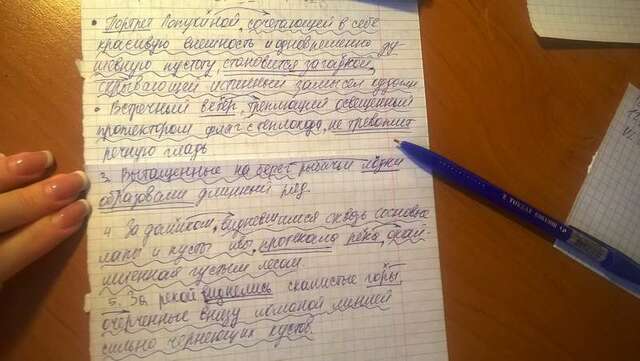 • Портрет Лопухиной, сочетающей в себе
красивую внешность и одновременно ду
шевную пустоту, становится загадкой,
скрывающей истинный замысел худож
• Встречный ветер, треплющий освещенный
прожектором флаг с теплохода, не тревожит
речную гладь
3. Вытащенные на берег рыбачьи лодки
образовали длинный ряд.
4. За домиком, видневшимся сквозь сосновые
лапы и кусты ивы, протекала река, окай
мленная густым лесом
5. За рекой виднелись скалистые горы,
очерченные внизу ломаной линией
сильно чернеющих кустов.